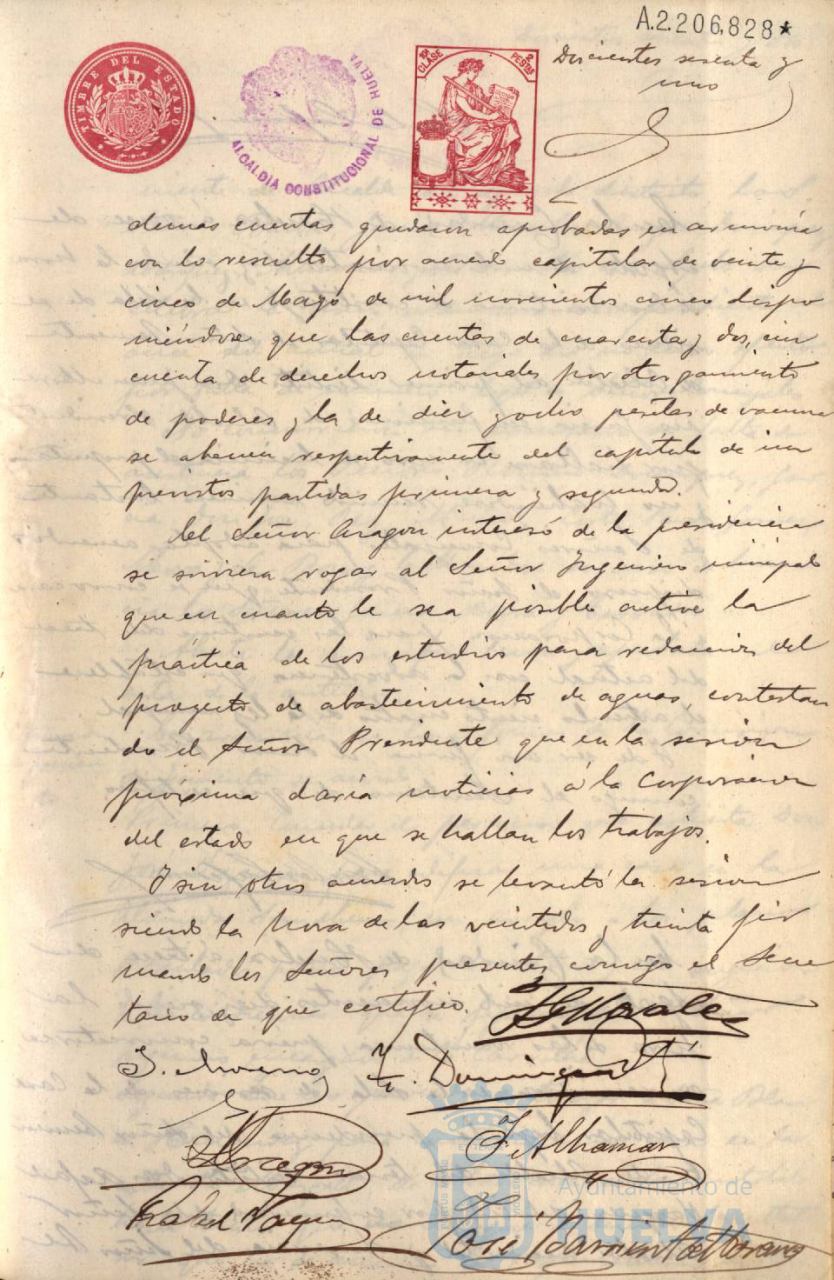 A.2.206,828*
TIMBRE DEL ESTADO
ALCALDIA CONSTITUCIONAL DE HUELVA
10ª CLASE
2 PESETAS
Doscientos sesenta y
uno
demas cuentas quedaron aprobadas en armonía
con lo resuelto por acuerdo capitular de veinte y
cinco de Mayo de mil novecientos cinco dispo
niéndose que las cuentas de cuarenta y dos, cin
cuenta de derechos notariales por otorgamiento
de poderes y la de diez y ocho pesetas de vacuna
se abonen respectivamente del capítulo de im
previstos partidas primera y segunda.
El Señor Aragon interesó de la presidencia
se sirviera rogar al Señor Ingeniero municipal
que en cuanto le sea posible active la
práctica de los estudios para redaccion del
proyecto de abastecimiento de aguas, contestan
do el Señor Presidente que en la sesion
próxima daría noticias á la Corporacion
del estado en que se hallan los trabajos.
Y sin otros acuerdos se levantó la sesion
siendo la hora de las veintidos y treinta fir
mando los Señores presentes conmigo el Secre
tario de que certifico.
J. Moreno
F. Dominguez
Aragon
F. Alhamar
Rafael Vazquez
José Barrientos
Ayuntamiento de
HUELVA